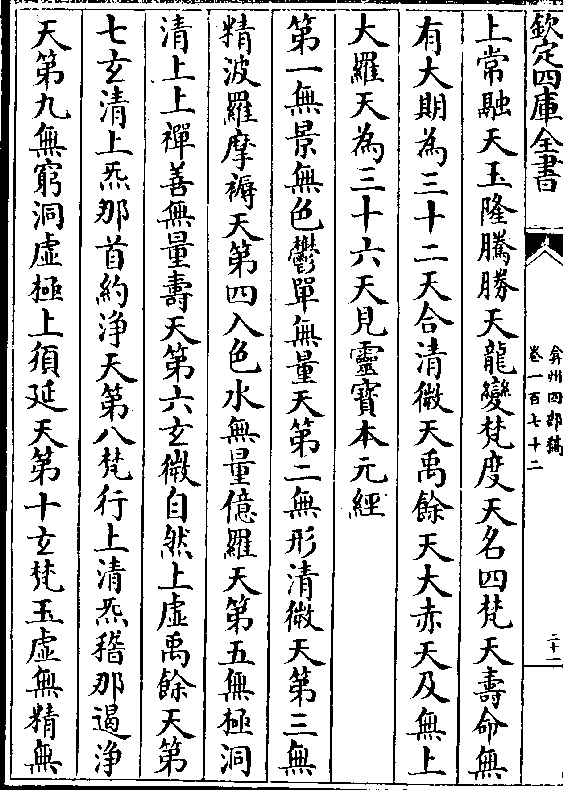 欽定四庫全書
弇州四部稿
卷一百七十二
二十一
上常融天玉隆騰勝天龍變梵度天名四梵天壽命無
有大期為三十二天合清微天禹餘天大赤天及無上
大羅天為三十六天見靈寶本元經
第一無景無色鬱單無量天第二無形清微天第三無
精波羅摩褥天第四入色水無量億羅天第五無極洞
清上上禪善無量壽天第六玄微自然上虛禹餘天第
七玄清上炁那首約淨天第八梵行上清炁稽那遏淨
天第九無窮洞虛極上須延天第十玄梵玉虛無精無